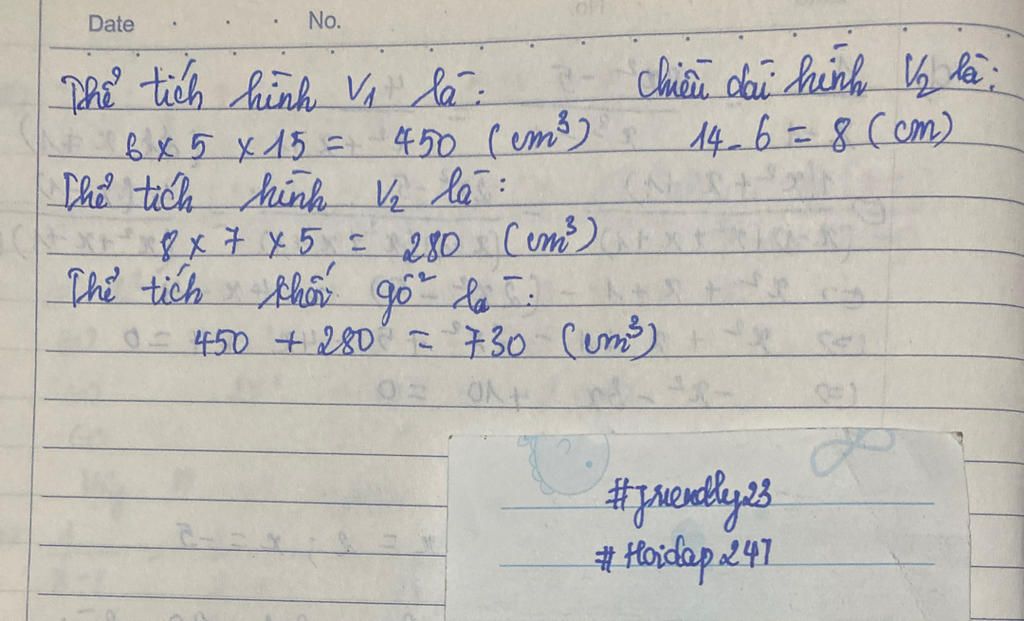 Date No.
Thể tích hình V₁ là: Chiều dài hình V₂ là:
6 x 5 x 15 = 450 (cm³) 14 - 6 = 8 (cm)
Thể tích hình V₂ là:
8 x 7 x 5 = 280 (cm³)
Thể tích khối gỗ là:
450 + 280 = 730 (cm³)
#friendly23
#Hoidap247